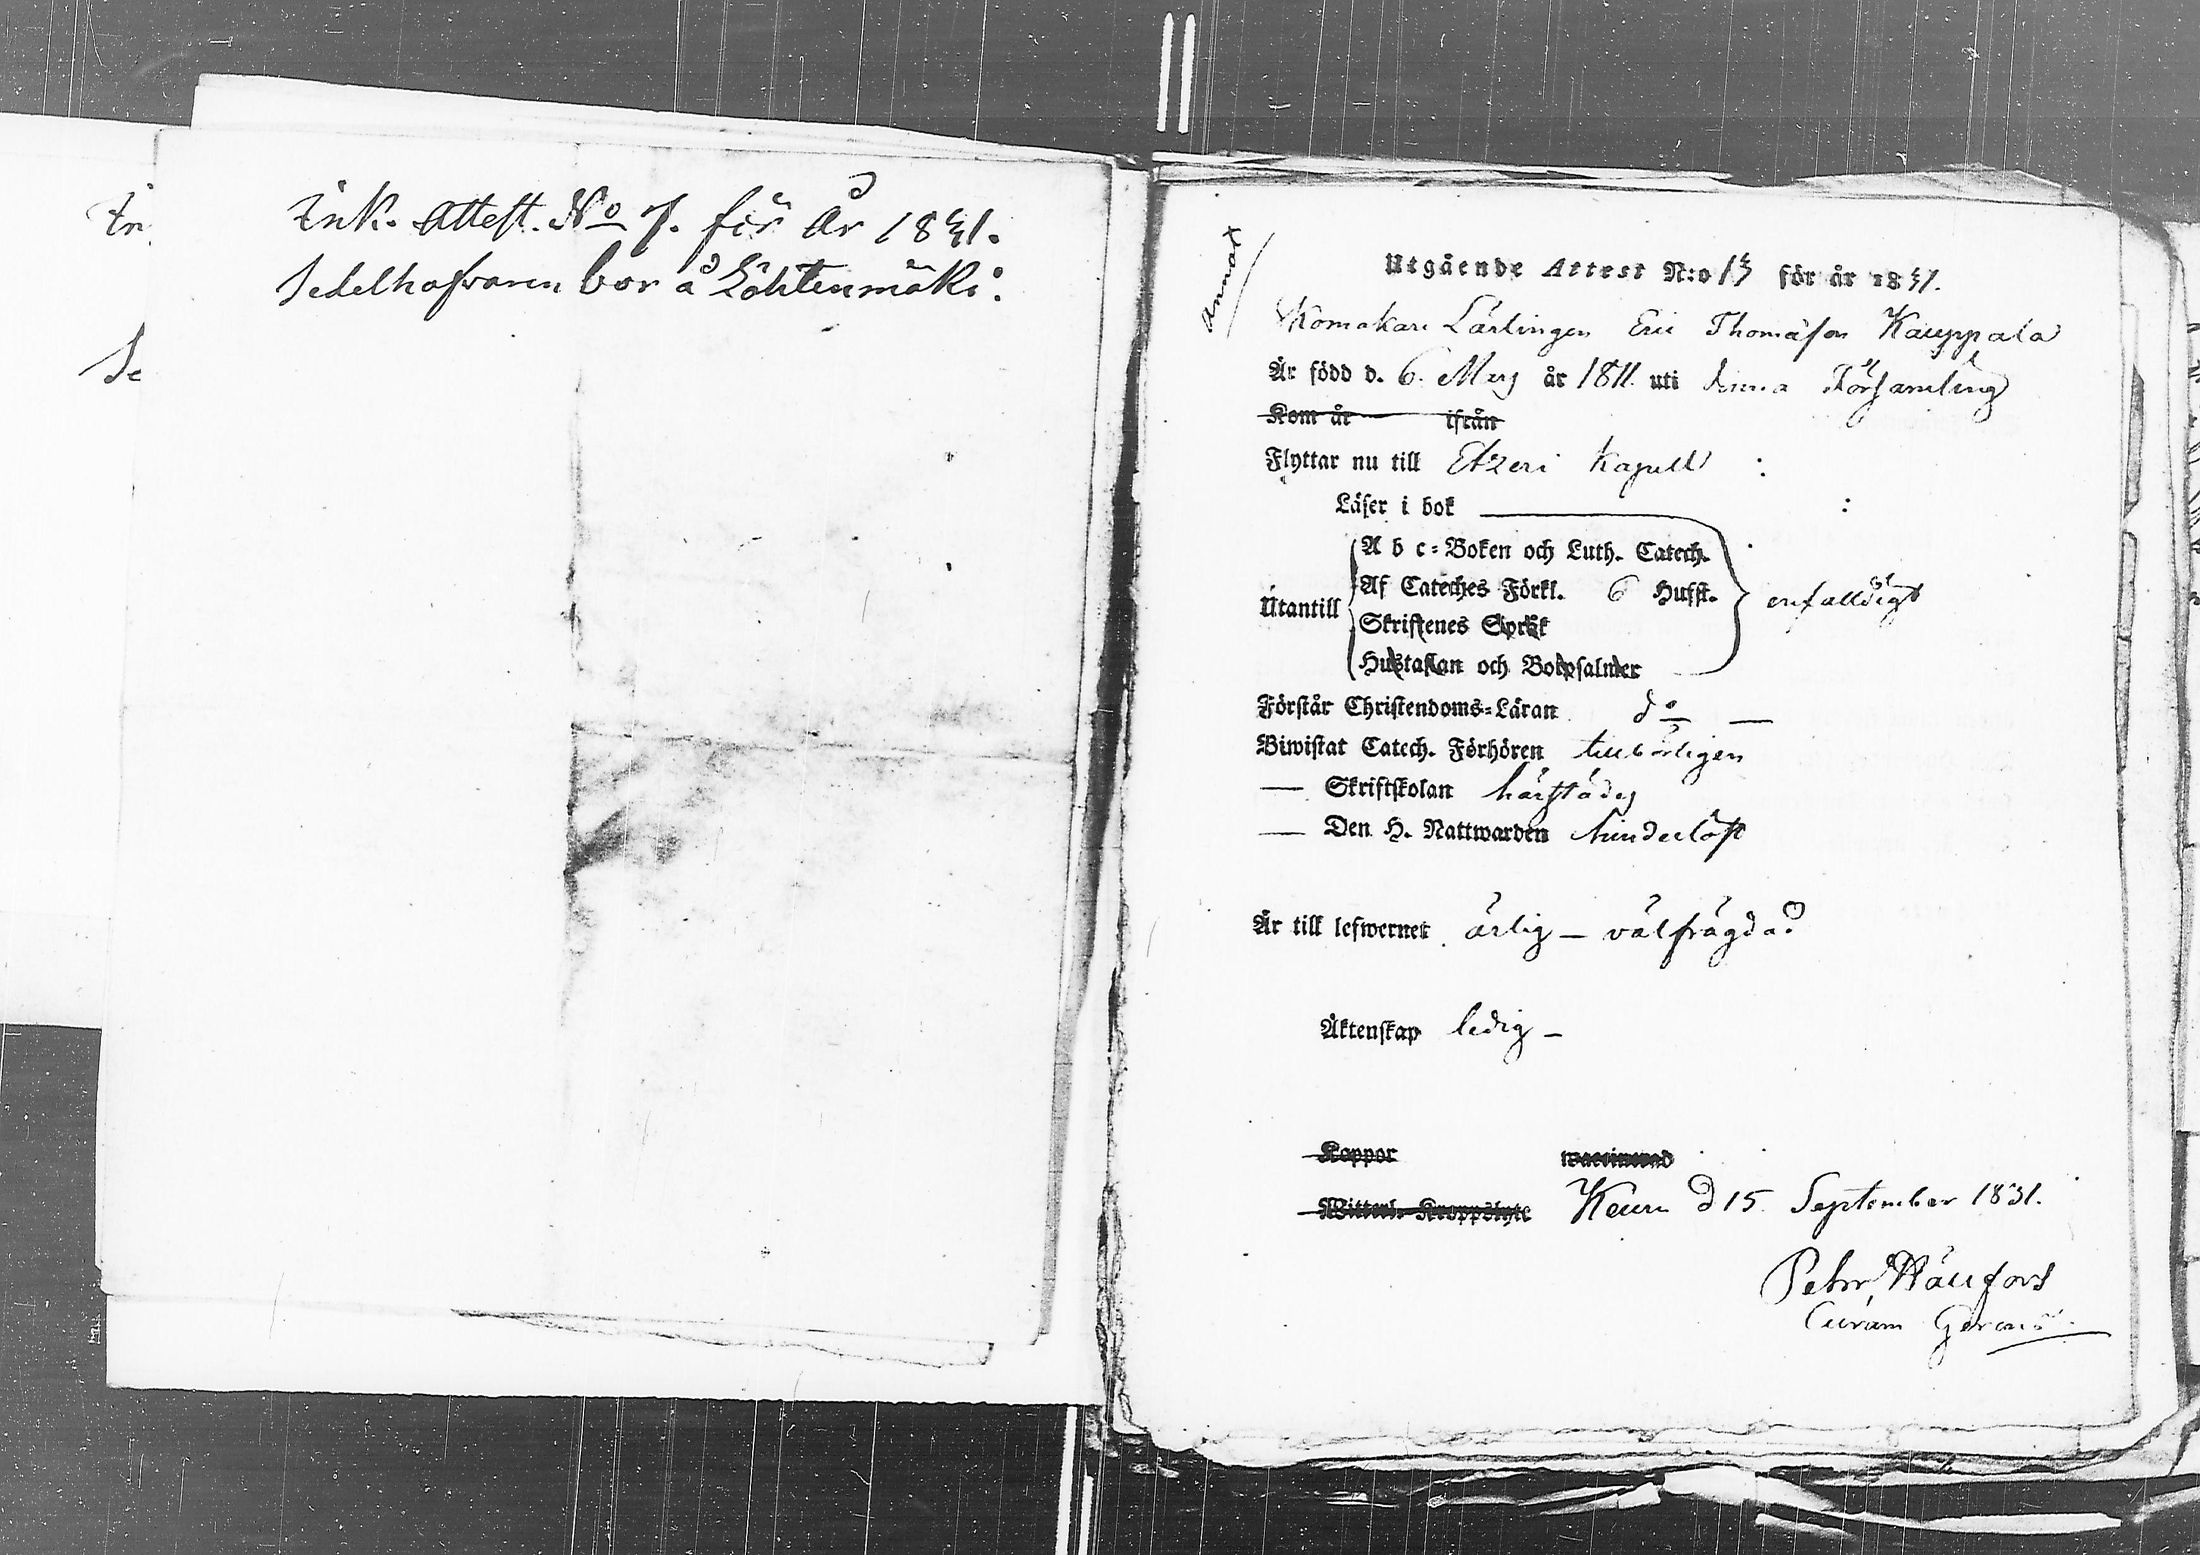 Ink. Attest. No 7. för År 1831.
Sedelhafvaren bor å Löhtenmäki.
In
Se
Annot
Utgående Attest N:o 13 för år 1831.
Skomakare Lärlingen Eric Thomasson Kauppala
Är född d. 6. Mars år 1811. uti denna Församling
Kom år ifrån
Flyttar nu till Etzeri Kapell
Läser i bok
A b c-Boken och Luth. Catech.
Af Cateches Förkl. 6 Hufst.
Utantill enfaldigt
Skriftenes Språk
Hustaflan och Botpsalmer
Förstår Christendoms-Läran do
Biwistat Catech. Förhören tillbörligen
— Skriftskolan härstädes
— Den H. Nattwarden hinderlöst
Är till lefwernet ärlig – välfrägdad
Äktenskap ledig –
Koppor waccinerad
Witterl. Kroppslyte Keuru d 15 September 1831.
Petr
Curam Gerens